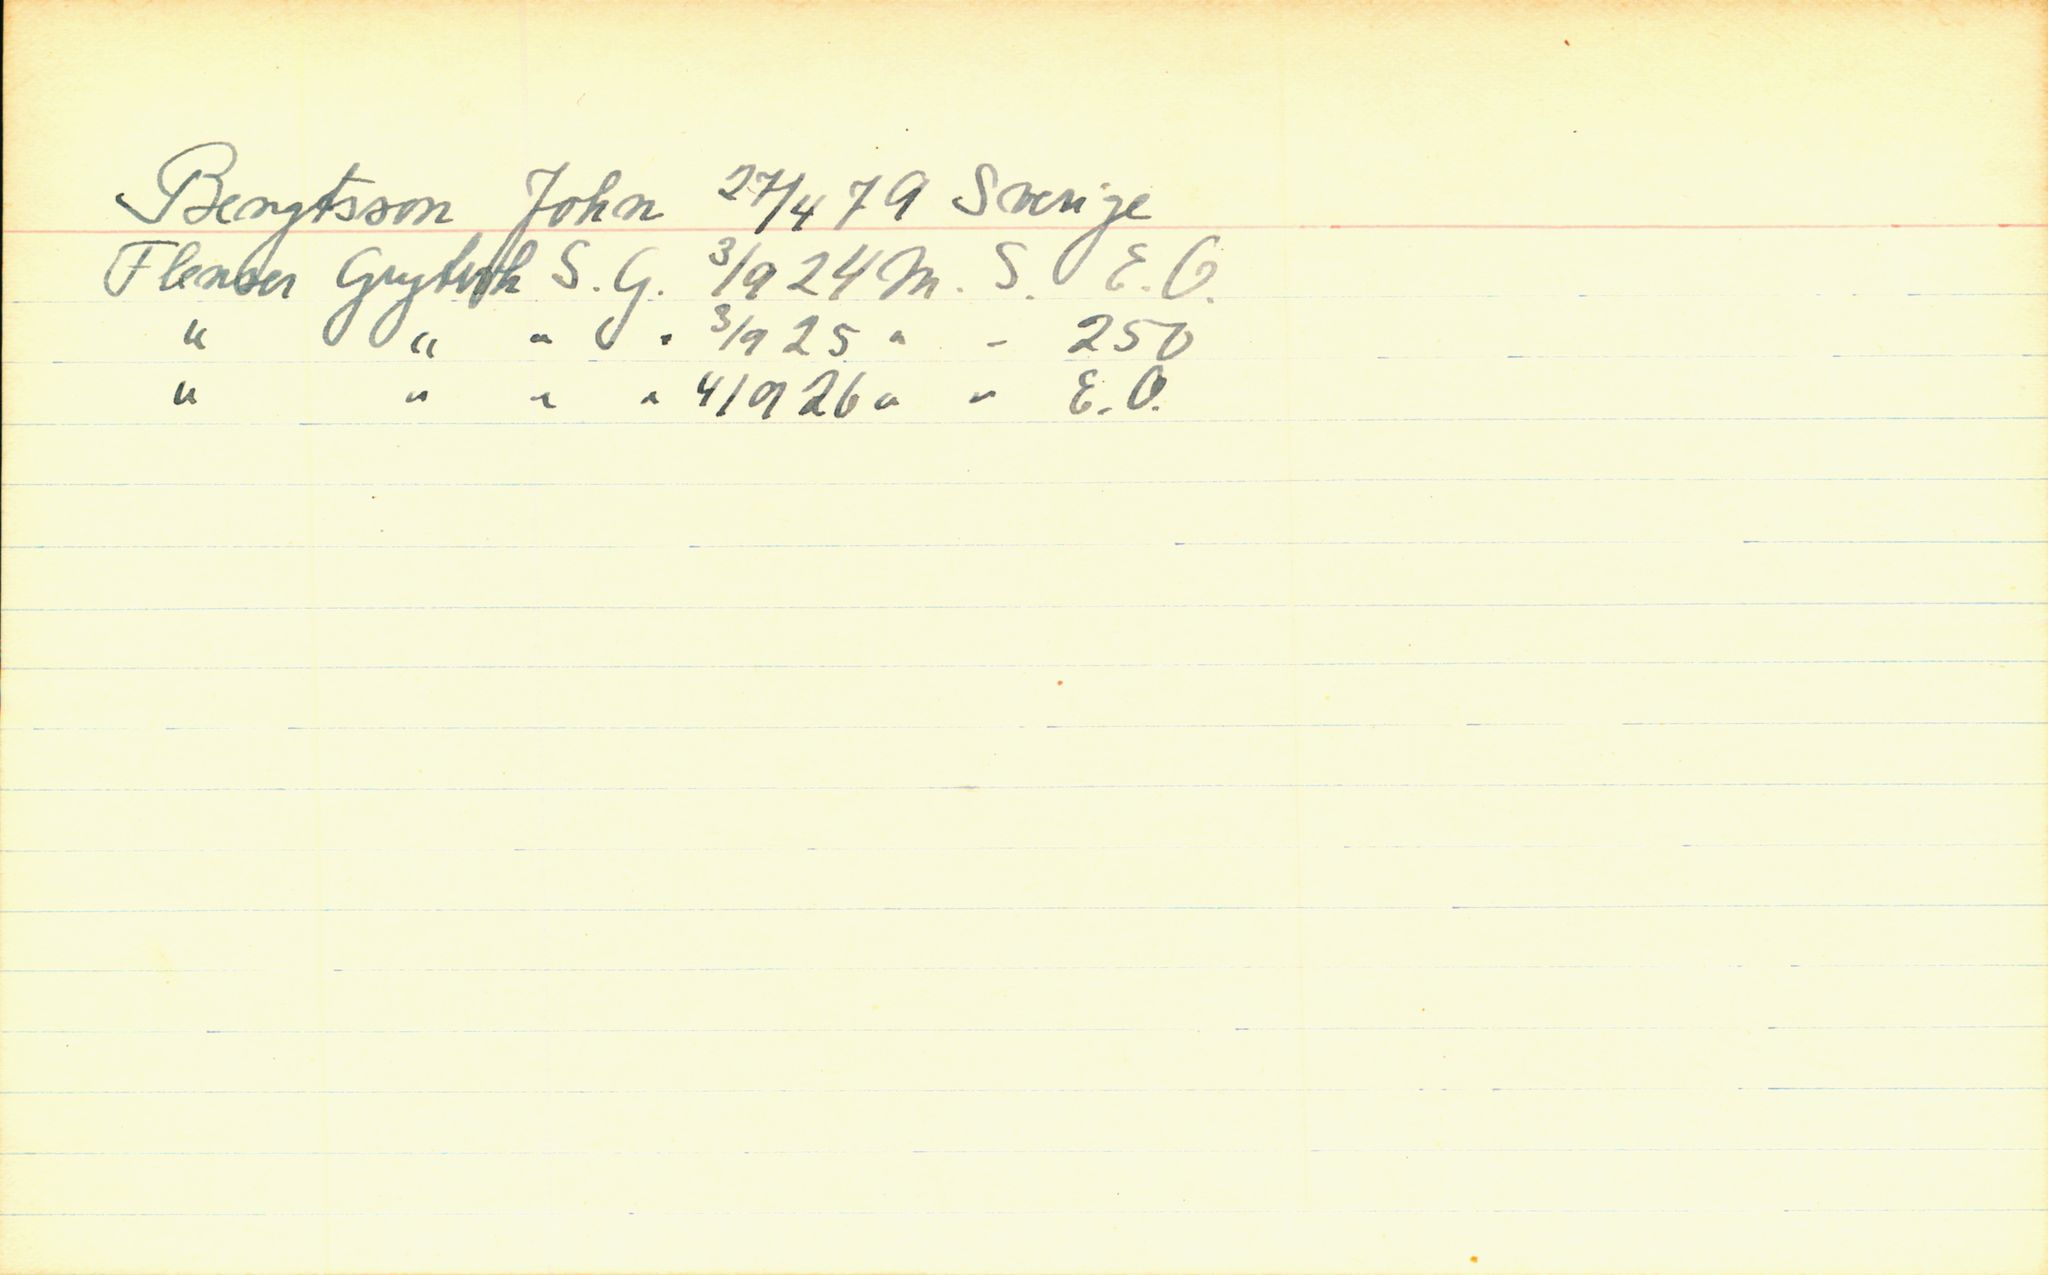 Bengtsson John 27/4 79 Sverige
Flenser Grytvik S. G. 3/9 24 M. S. E. O.
" " " " 3/9 25 " " 250
" " " " 4/9 26 " " E. O.